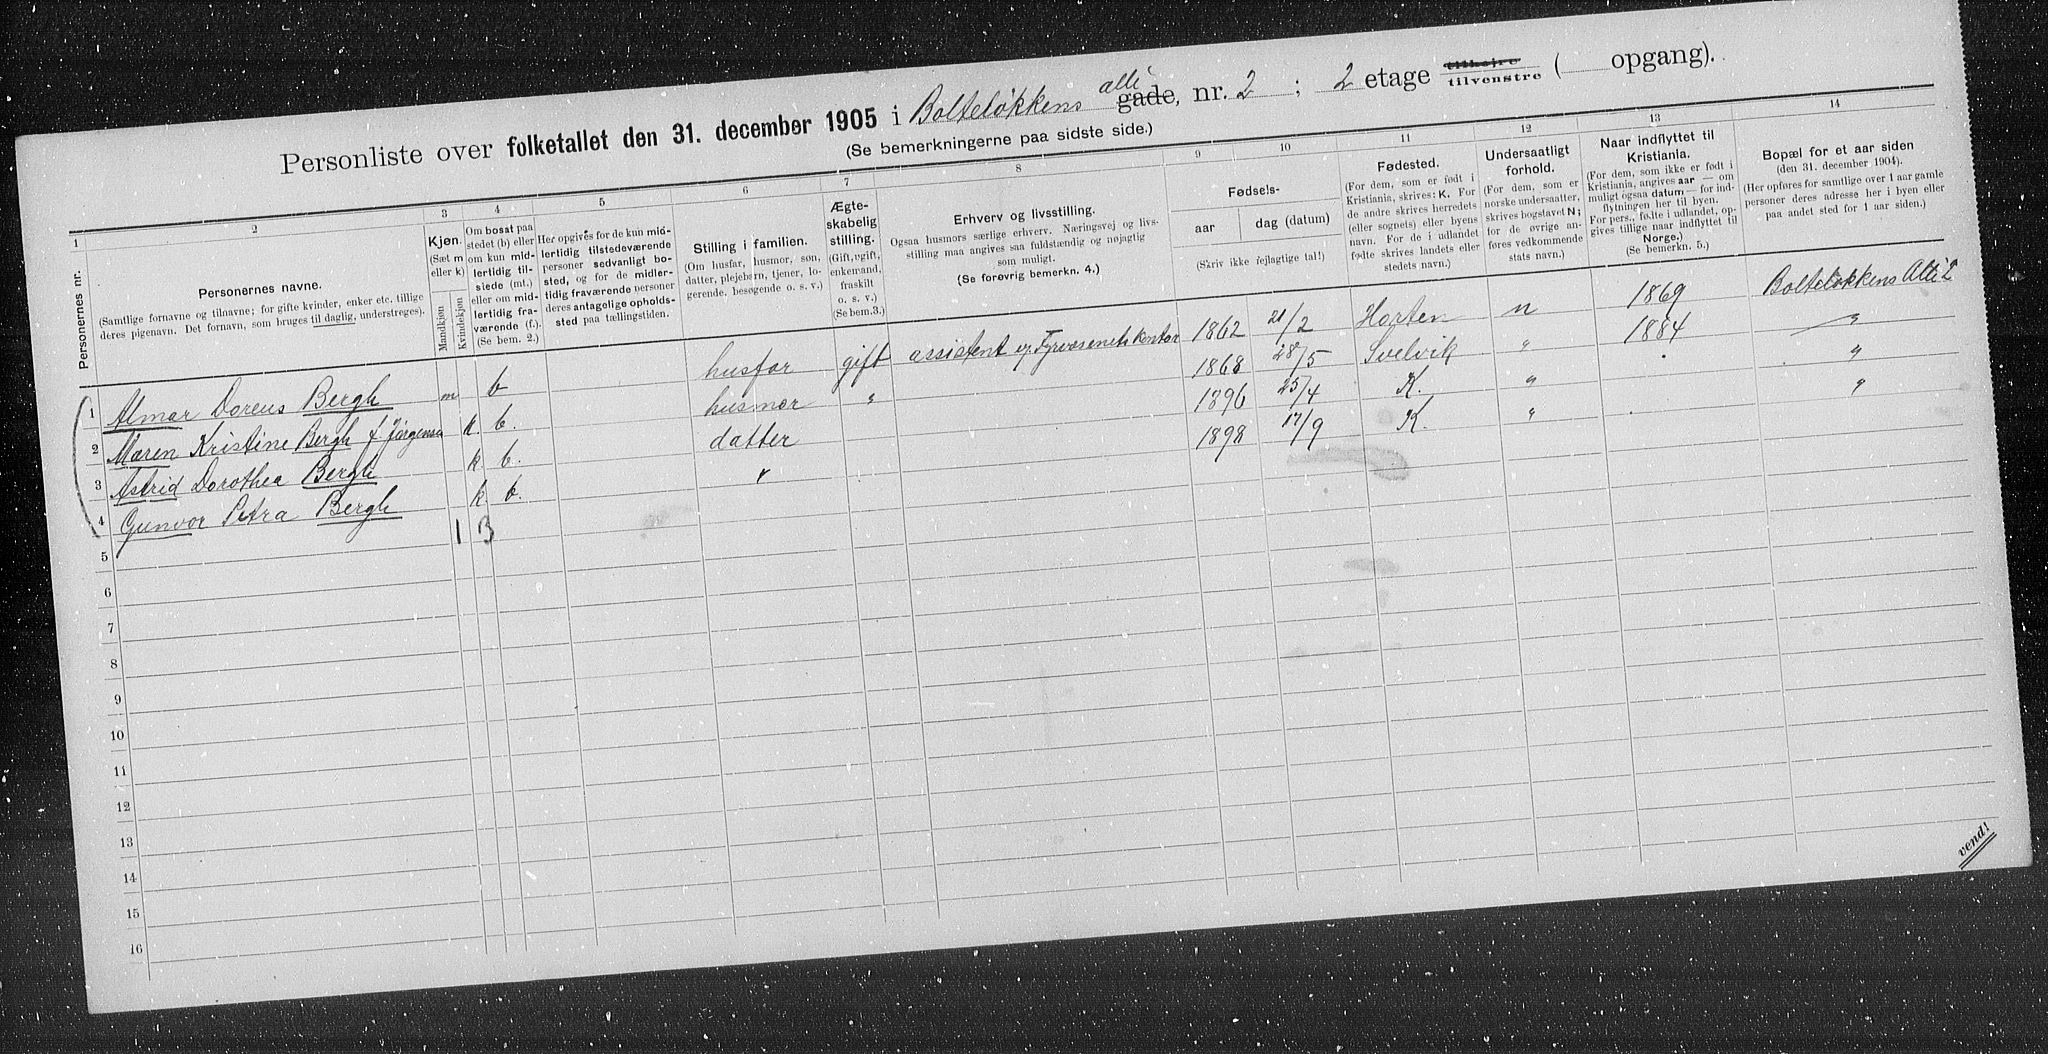 Personliste over folketallet den 31. december 1905 i Bolteløkkens gade, alle nr. 2 ; 2 etage tilhøire tilvenstre ( opgang).
(Se bemerkningerne paa sidste side.)
1
Personernes nr.
2
Personernes navne.
(Samtlige fornavne og tilnavne; for gifte kvinder, enker etc. tillige
deres pigenavn. Det fornavn, som bruges til daglig, understreges).
3
Kjøn.
(Sæt m
eller k)
Mandkjøn
Kvindekjøn
4
Om bosat paa
stedet (b) eller
om kun mid-
lertidig til-
stede (mt.)
eller om mid-
lertidig fra-
værende (f.)
(Se bem. 2.)
5
Her opgives for de kun mid-
lertidig tilstedeværende
personer sedvanligt bo-
sted, og for de midler-
tidig fraværende personer
deres antagelige opholds-
sted paa tællingstiden.
6
Stilling i familien.
(Om husfar, husmor, søn,
datter, plejebørn, tjener, lo-
gerende, besøgende o. s. v.)
7
Ægte-
skabelig
stilling.
(Gift, ugift,
enkemand,
fraskilt
o. s. v.)
(Se bem. 3.)
8
Erhverv og livsstilling.
Ogsaa husmors særlige erhverv. Næringsvej og livs-
stilling maa angives saa fuldstændig og nøjagtig
som muligt.
(Se forøvrig bemerkn. 4.)
9
10
Fødsels-
aar
dag (datum)
(Skriv ikke fejlagtige tal!)
11
Fødested.
(For dem, som er født i
Kristiania, skrives: K. For
de andre skrives herredets
(eller sognets) eller byens
navn. For de i udlandet
fødte skrives landets eller
stedets navn.)
12
Undersaatligt
forhold.
(For dem, som er
norske undersaatter,
skrives bogstavet N;
for de øvrige an-
føres vedkommende
stats navn.)
13
Naar indflyttet til
Kristiania.
(For dem, som ikke er født i
Kristiania, angives aar — om
muligt ogsaa datum — for ind-
flytningen her til byen.
For pers., fødte i udlandet, op-
gives tillige naar indflyttet til
Norge.)
(Se bemerkn. 5.)
14
Bopæl for et aar siden
(den 31. december 1904).
(Her opføres for samtlige over 1 aar gamle
personer deres adresse her i byen eller
paa andet sted for 1 aar siden.)
1 Almar Doreus Bergh m b husfar gift assistent v. Fyrvæsenets kontor 1862 21/2 Horten n 1869 Bolteløkkens Alle 2
2 Maren Kristine Bergh f. Jørgensen k. b. husmor " 1868 28/5 Svelvik " 1884 "
3 Astrid Dorothea Bergh k b. datter 1896 25/4 K. " "
4 Gunvor Petra Bergh k. b. " 1898 17/9 K. " "
1 3
5
6
7
8
9
10
11
12
13
14
15
16
vend!